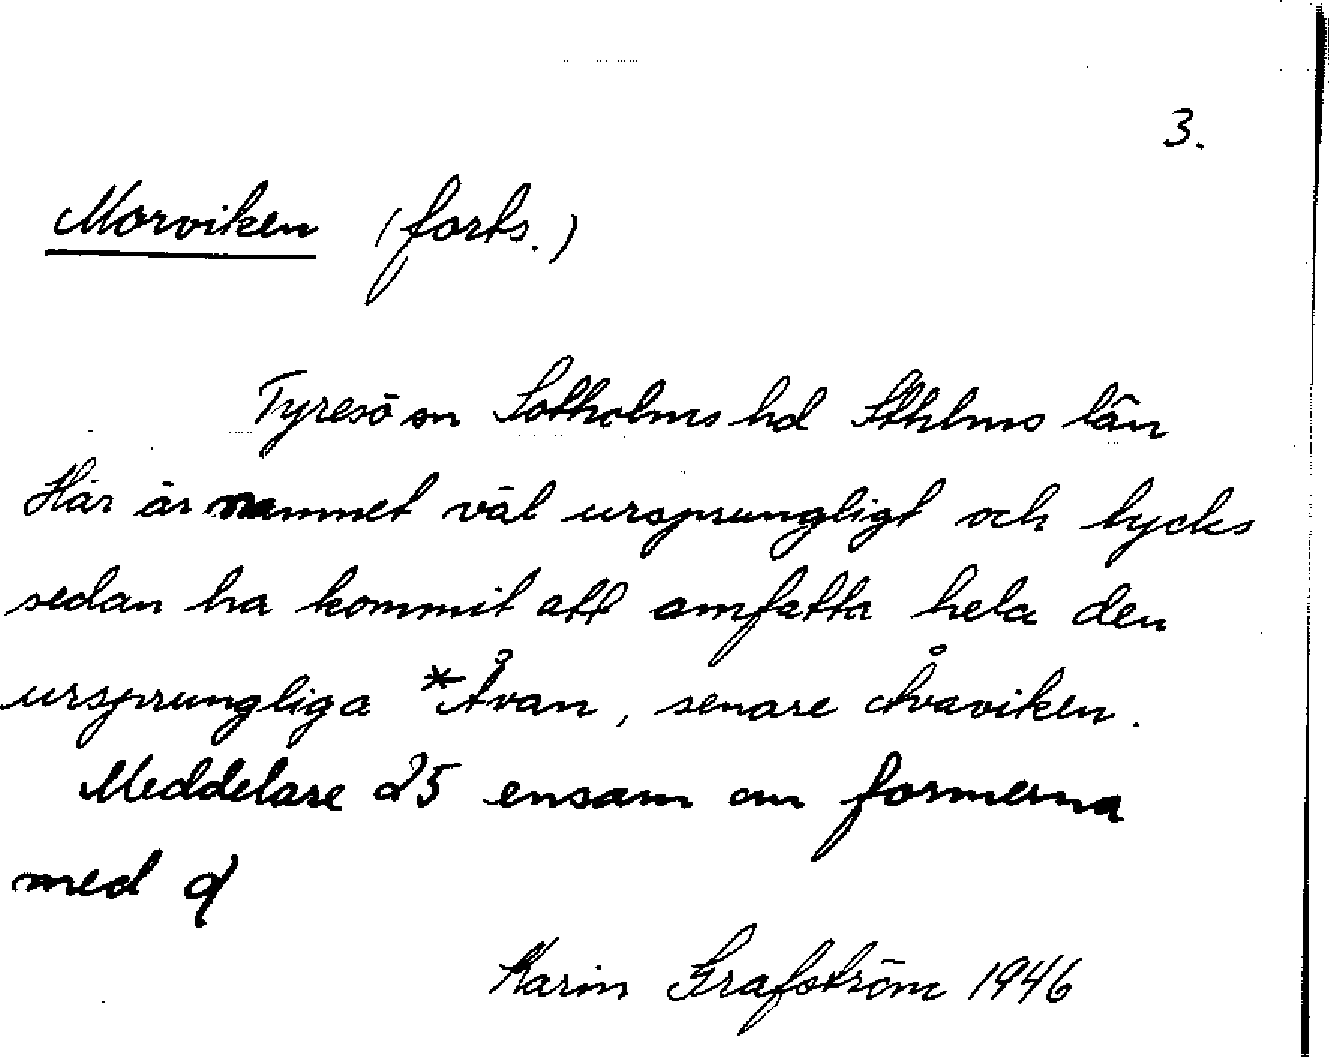 3.
Morviken (forts.)
Tyresö sn Sotholms hd Sthlms län
Här är namnet väl ursprungligt och tycks
sedan ha kommit att omfatta hela den
ursprungliga *Åvan, senare Åvaviken.
Meddelare 25 ensam om formerna
med
Karin Grafström 1946